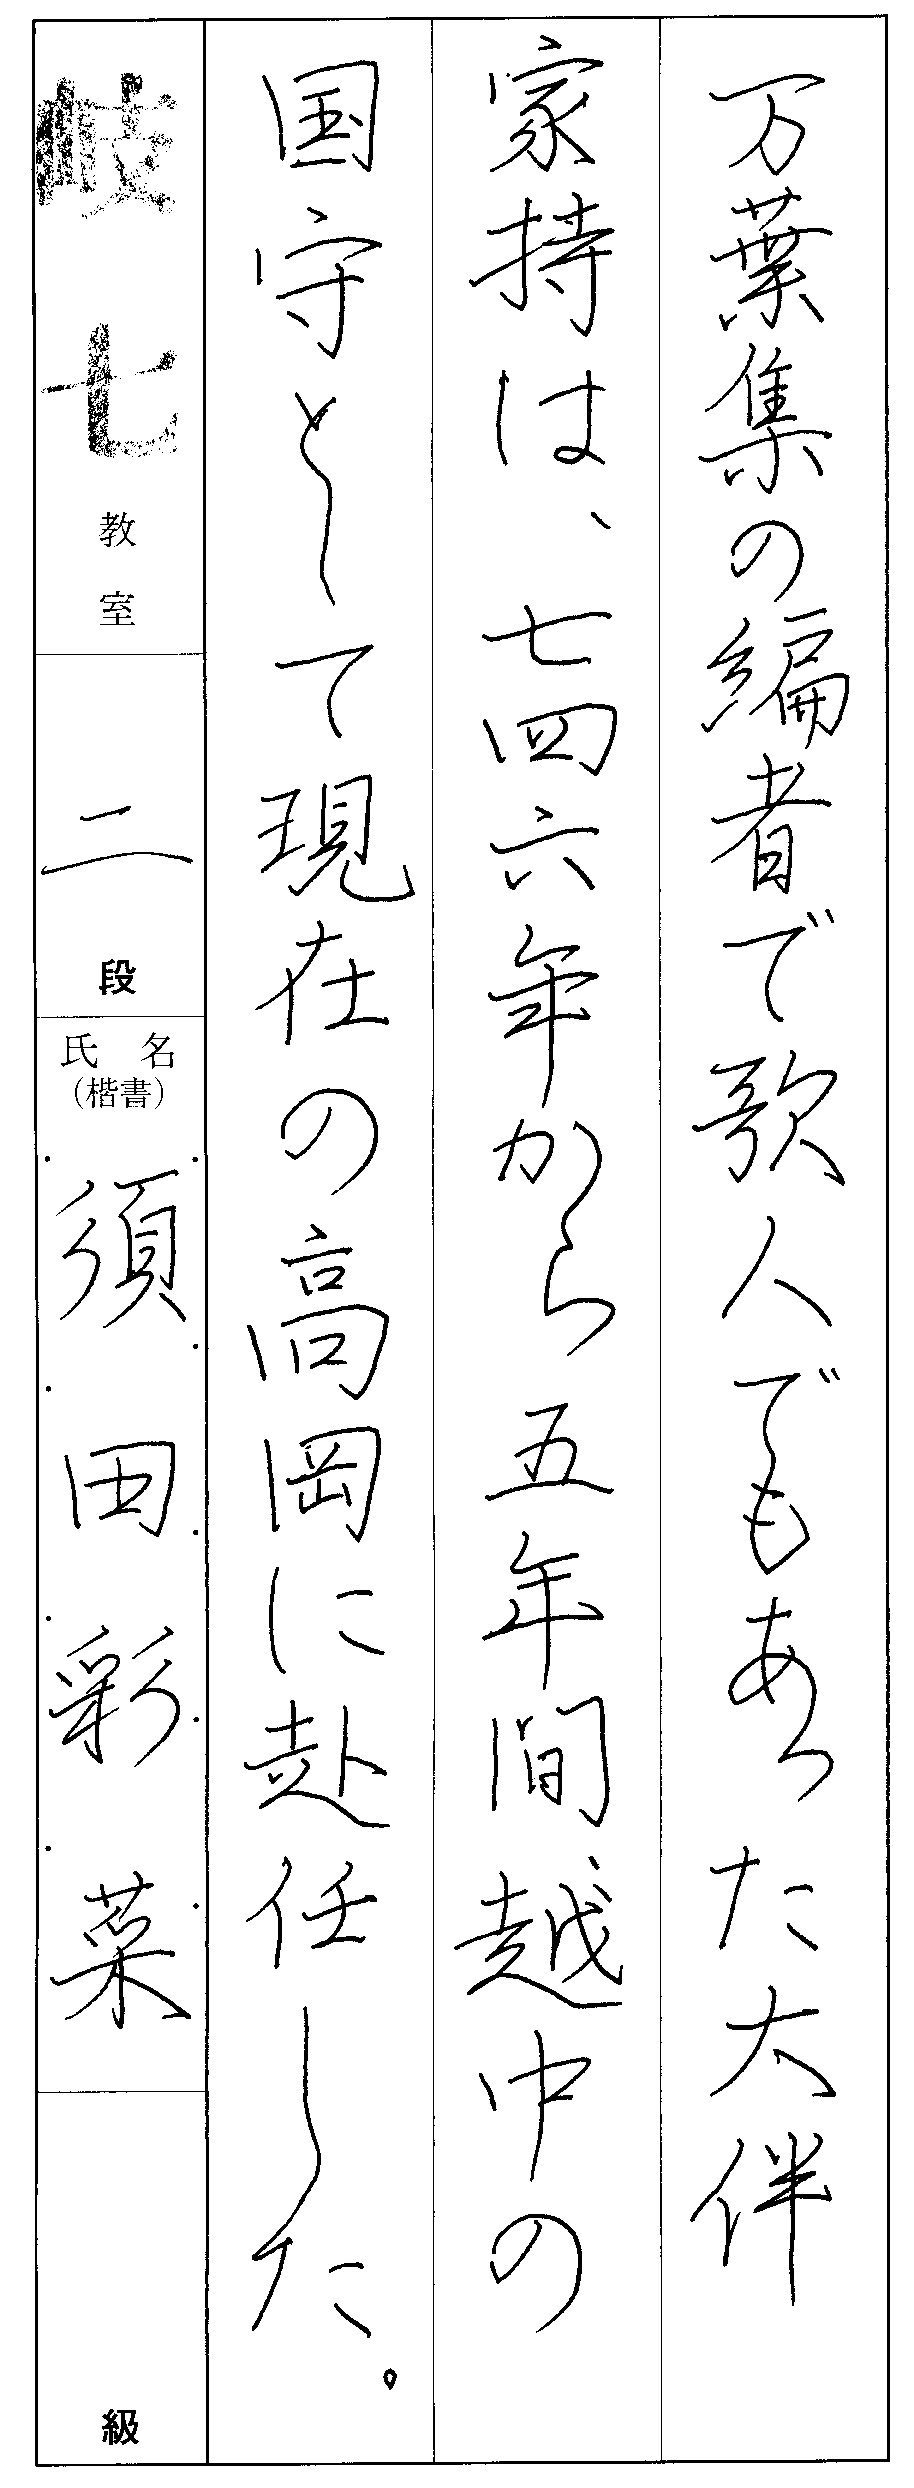 万葉集の編者で歌人でもあった大伴
家持は、七四六年から五年間越中の
国守として現在の高岡に赴任した。
岐七教室
二段
氏名
(楷書)
須田彩菜
級